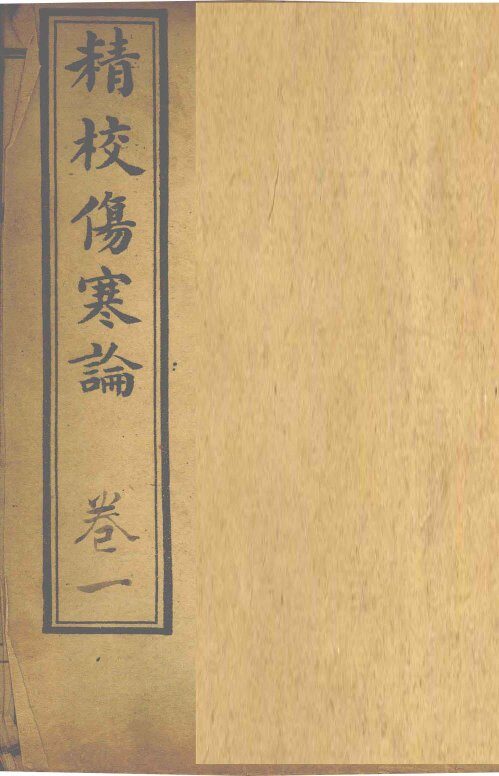 精校傷寒論
卷一